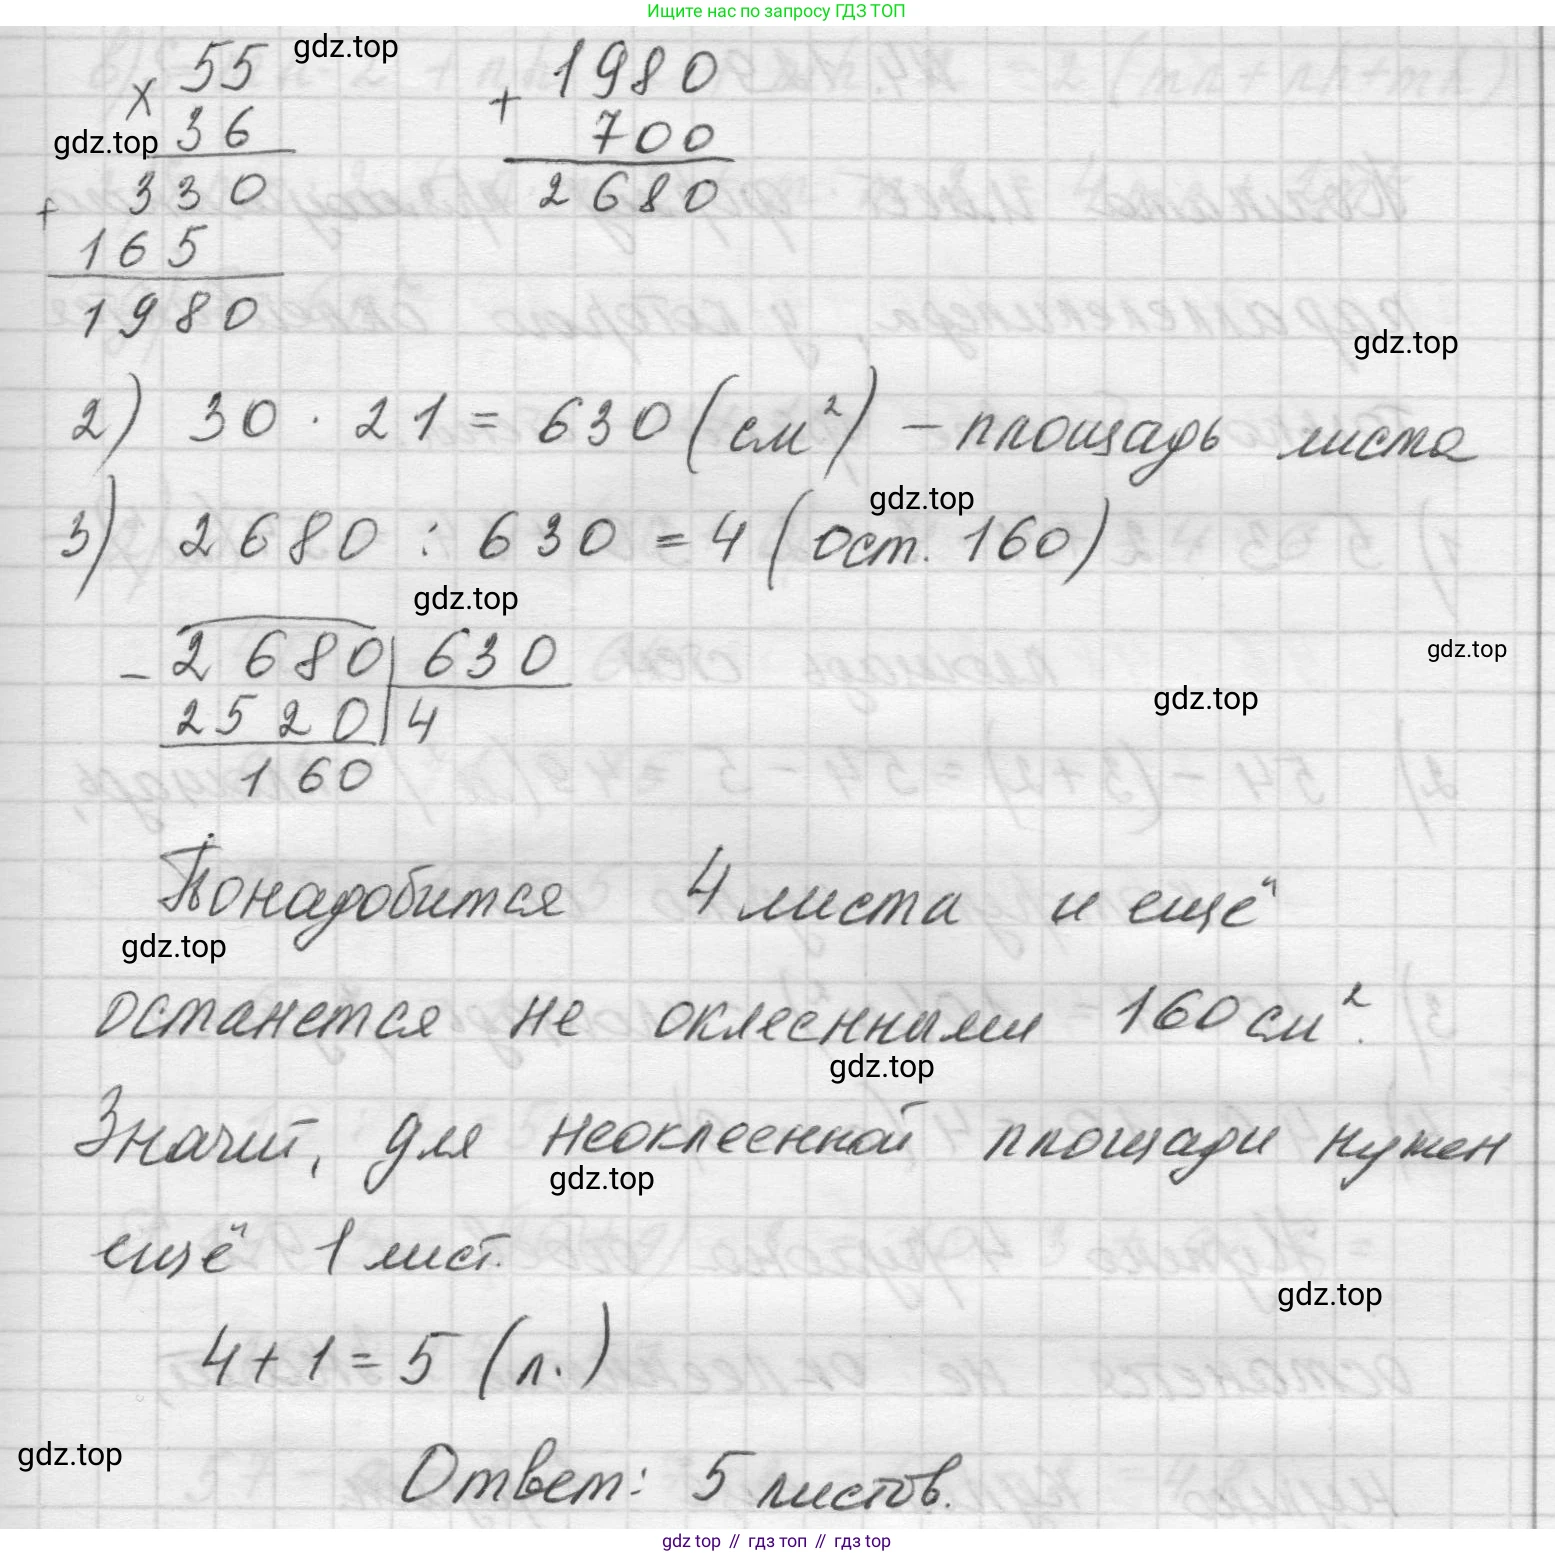 Ищите нас по запросу ГДЗ ТОП
gdz.top
× 55
36
gdz.top
+ 330
165
1980
+ 1980
700
2680
gdz.top
2) 30 · 21 = 630 (см²) – площадь листа
gdz.top
3) 2680 : 630 = 4 (ост. 160)
gdz.top
gdz.top
– 2680 | 630
2520 | 4
160
gdz.top
Понадобится 4 листа и ещё
gdz.top
останется не оклеенными 160 см².
gdz.top
Значит, для неоклеенной площади нужен
gdz.top
ещё 1 лист.
gdz.top
4 + 1 = 5 (л.)
gdz.top
Ответ: 5 листов.
gdz top // гдз топ // gdz top